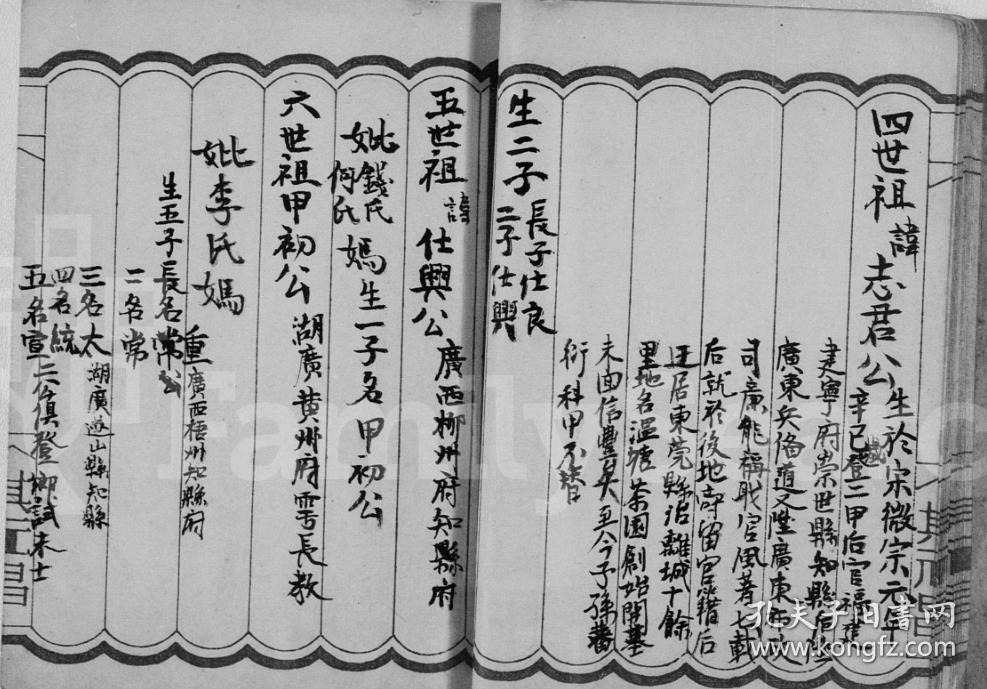 四世祖諱志君公生於宗徽宗元年
辛己歲登二甲后官福建
建寧府崇世縣知縣后陞
廣東兵俻道又陞廣東布政
司章能稱職官風著七載
后就於後地部留宫籍后
迁居東莞縣治離城十餘
里地名溫塘茶園創始開基
未面信豊矣至今子孫蕃
衍科甲不替
生二子長子仕良
二子仕興
五世祖諱仕興公廣西柳州府知縣府
妣錢氏何氏媽生一子名甲初公
六世祖甲初公湖廣黄州府雩長教
妣李氏媽重廣西梧州知縣府
生五子長名常公
二名常
三名太湖廣遊山縣知縣
四名統
五名宣二公俱登鄉試未士
其元昌
孔夫子旧书网
www.kongfz.com
Family